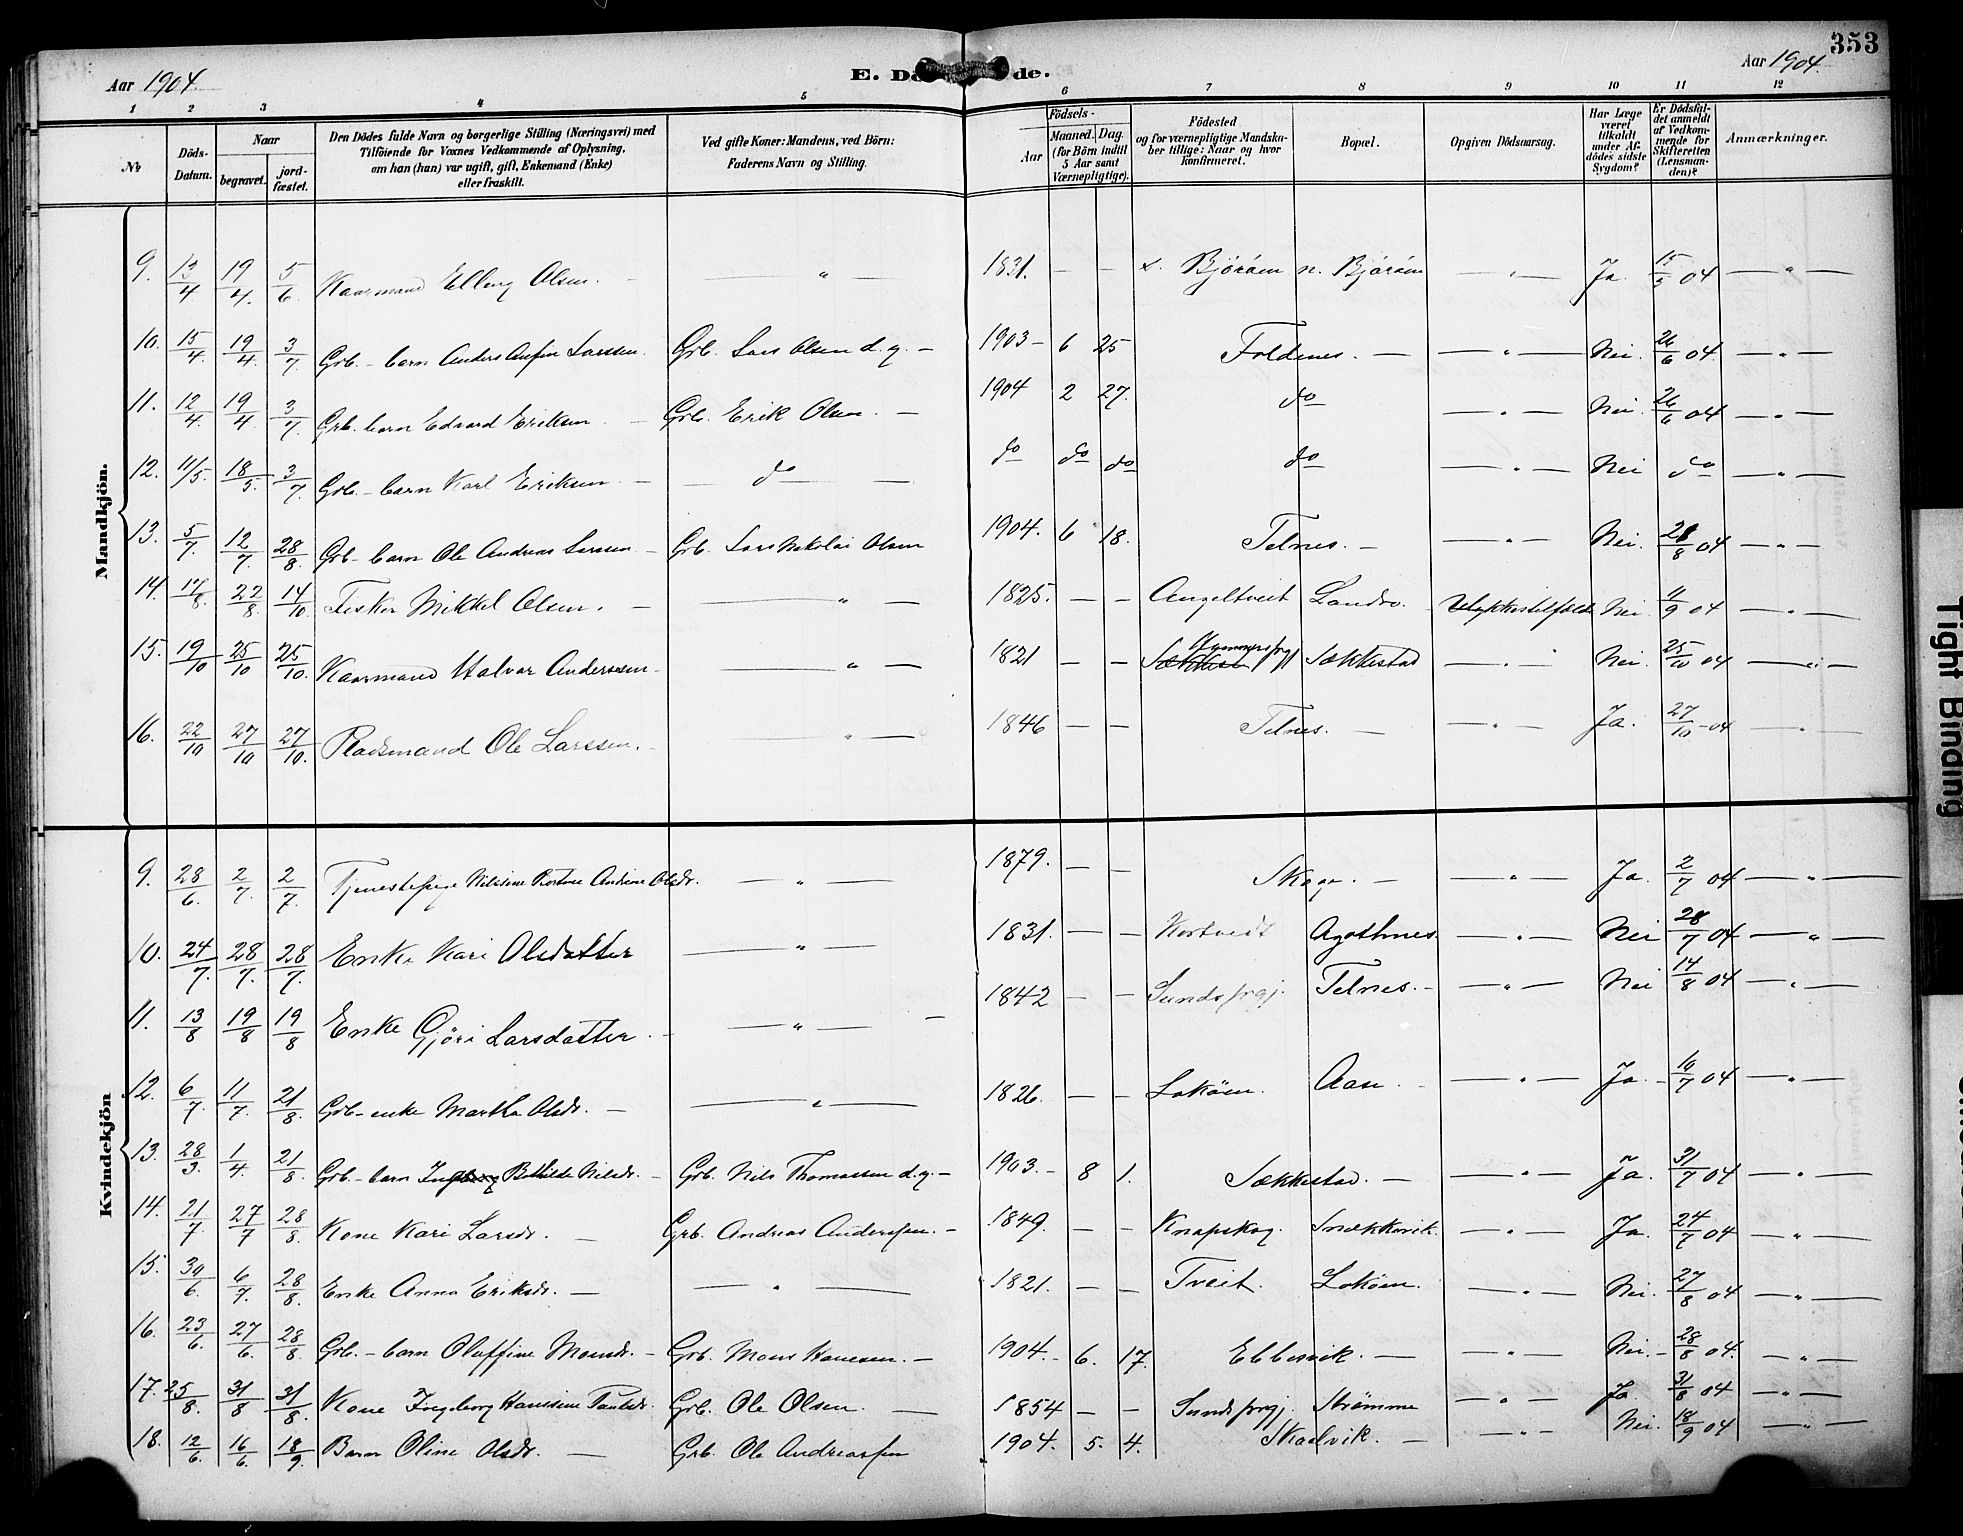 353
Aar 1904. E. Dö de. Aar 1904.
1 2 3 4 5 6 7 8 9 10 11 12
№ Döds-Datum. Naar begravet. jord-fæstet. Den Dödes fulde Navn og borgerlige Stilling (Næringsvei) med Tilföiende for Voxnes Vedkommende af Oplysning, om han (hun) var ugift, gift, Enkemand (Enke) eller fraskilt. Ved gifte Koner: Mandens, ved Börn: Faderens Navn og Stilling. Födsels- Aar Maaned. Dag. (for Börn indtil 5 Aar samt Værnepligtige). Födested og for værnepligtige Mandskaber tillige: Naar og hvor konfirmeret. Bopæl. Opgiven Dödsaarsag. Har Læge været tilkaldt under Afdödes sidste Sygdom? Er Dödsfaldet anmeldt af Vedkommende for Skifteretten (Lensmanden)? Anmærkninger.
Mandkjön.
9. 13/4 19/4. 5/6. Kaarmand Elling Olsen. — " — 1831. — — s. Björöen n. Björöen — " — Ja. 15/5 04 — " —
10. 15/4. 19/4. 3/7. Grb.-barn Anders Larssen. Grb. Lars Olsen d.y. — 1903 — 6 25 Foldenes. — — " — Nei. 26/6 04. — " —
11. 12/4. 19/4. 3/7. Grb. barn Edvard Eriksen — Grb. Erik Olsen. — 1904 2 27. do — " — Nei. 26/6 04 — " —
12. 11/5. 18/5. 3/7. Grb.-barn Karl Eriksen — — do — do do do do — " — Nei do — " —
13. 5/7. 12/7. 28/8. Grb-barn Ole Andreas Larssen — Grb. Lars Nikolai Olsen 1904. 6 18. Telnes. — — " — Nei. 28/8 04 — " —
14. 17/8. 22/8. 14/10. Fisker Mikkel Olsen. — — " — 1825. — — Angeltveit Landro. Ulykkestilfælde Nei. /9 04 — " —
15. 19/10 25/10 25/10. Kaarmand Halvor Anderssen — — " — 1821 — — Sækkestad — " — Nei. 25/10 04 — " —
16. 22/10 27/10 27/10. Pladsmand Ole Larssen. — — " — 1846 — — Telnes. — — " — Ja. 27/10 - 04 — " —
Kvindekjön
9. 28/6. 2/7. 2/7. Tjenestepige Andrine Olsdr. — " — 1879. — — Skoge. — — " — Ja. 2/7 04 — " —
10. 24/7. 28/7. 28/7. Enke Kari Olsdatter — " — 1831. — — Kortveit Agothnes. — " — Nei 28/7 04 — " —
11. 13/8 19/8 19/8 Enke Gjöri Larsdatter. — — " — 1842 — — Sunds prgj. Telnes. — — " — Nei 14/8 04 — " —
12. 6/7 11/7. 21/8. Grb-enke Martha Olsdr. — — " — 1826. — — Loköen. Aase. — — " — Ja. — 10/7 04 — " —
13. 28/3. 1/4. 21/8. Grb.-barn Bothilde Nilsdr. — Grb. Nils Thomassen d.y. — 1903. — 8 1. Sækkestad. — — " — Ja. 31/7 04 — " —
14. 21/7. 27/7 28/8. Kone Kari Larsdr. — Grb. Andreas Anderssen. — 1849. — — Knapskog Snekkevik. — " — Ja. 24/7 04 — " —
15. 30/6. 6/7. 28/8. Enke Anna Eriksdr. — — " — 1821. — — Tveit. Loköen. — " — Nei. 27/8 04 — " —
16. 23/6. 27/6. 28/8. Grb.-barn Oluffine Monsdr. — Grb. Mons Hanssen. — 1904. — 6. 17. Ebbesvik. — — " — Nei. — 28/8 04. — " —
17. 25/8. 31/8 31/8. Kone Ingeborg Hanssine Paulsdr. Grb. Ole Olsen. — 1854 — — Sunds prgj. Strömme — " — Ja 31/8 04 — " —
18. 12/6. 16/6. 18/9. Barn Oline Olsdr. — Grb. Ole Andreassen 1904. 5. 4. Skaalvik. — — " — Nei. 18/9 04 — " —
Tight Binding